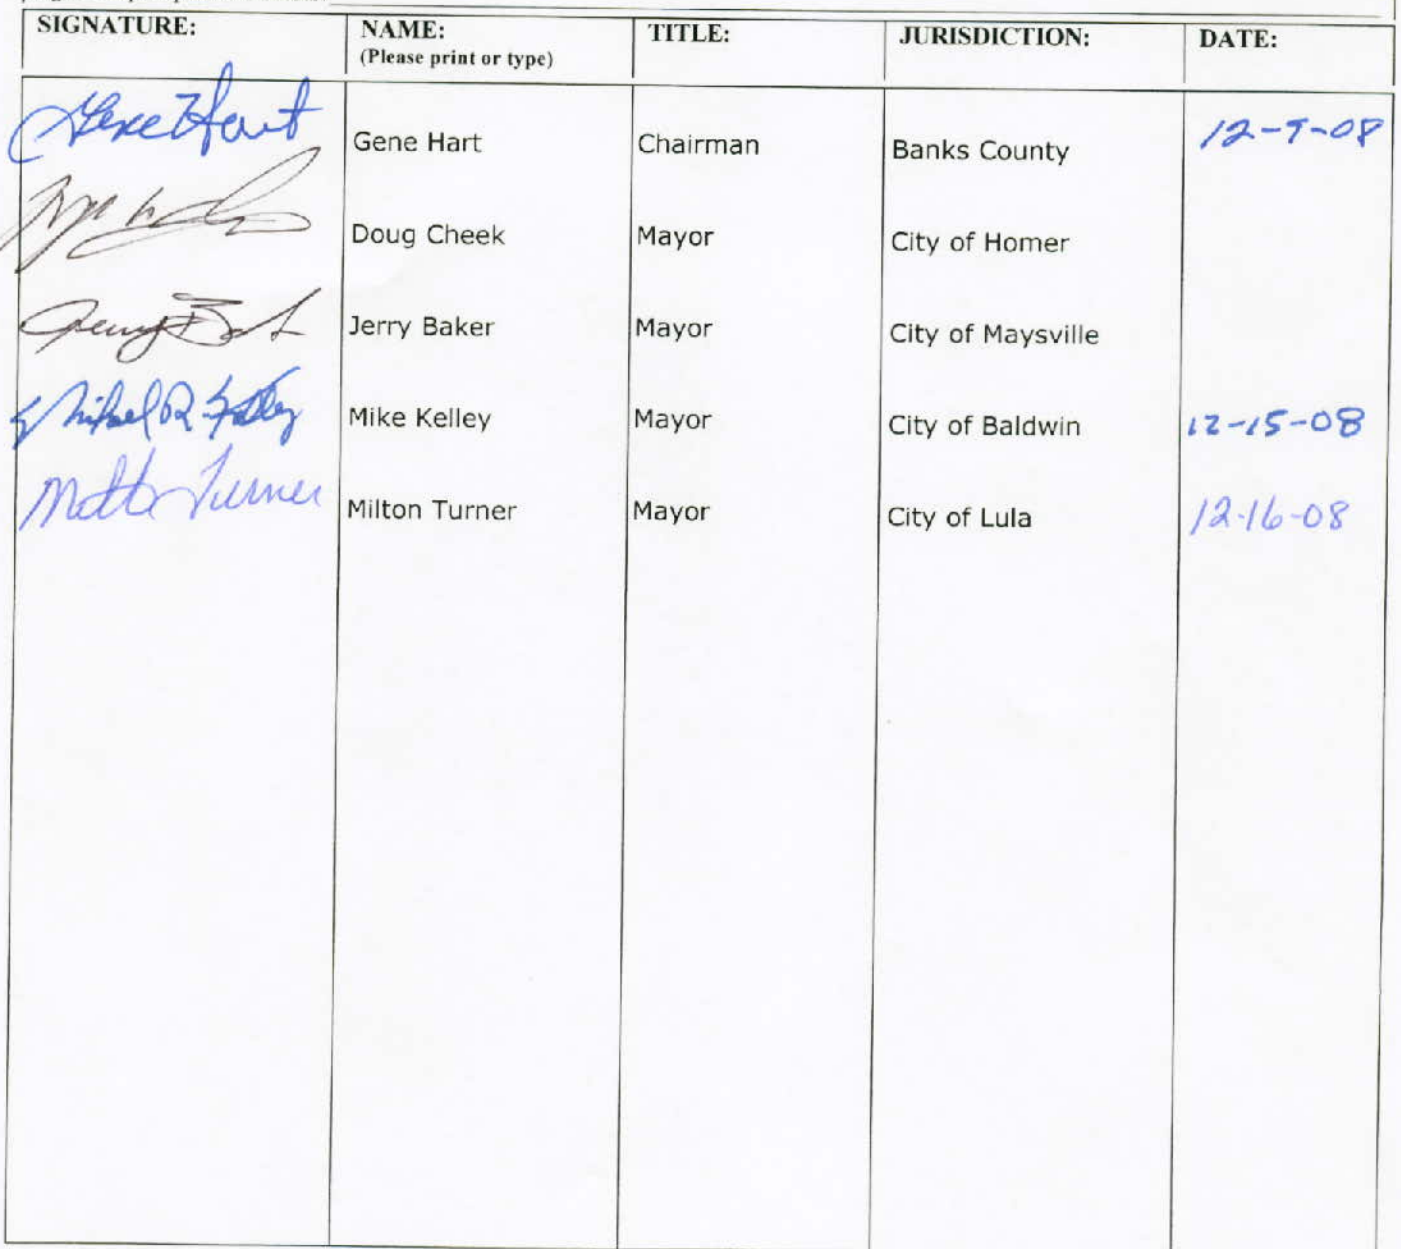 SIGNATURE: NAME: TITLE: JURISDICTION: DATE:
(Please print or type)
Gene Hart Gene Hart Chairman Banks County 12-9-08
Doug Cheek Mayor City of Homer
Jerry Baker Mayor City of Maysville
Michael R Kelley Mike Kelley Mayor City of Baldwin 12-15-08
Turner Milton Turner Mayor City of Lula 12-16-08